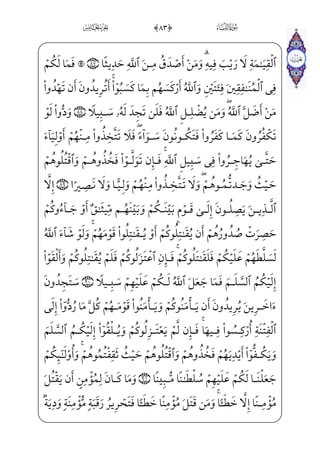 سُورَةُ النِّسَاءِ ﴿٨٣﴾ الجُزْءُ الخَامِسُ
ٱلْقِيَٰمَةِ لَا رَيْبَ فِيهِ ۗ وَمَنْ أَصْدَقُ مِنَ ٱللَّهِ حَدِيثًا ٨٧ ۞ فَمَا لَكُمْ
فِى ٱلْمُنَٰفِقِينَ فِئَتَيْنِ وَٱللَّهُ أَرْكَسَهُم بِمَا كَسَبُوٓا۟ ۚ أَتُرِيدُونَ أَن تَهْدُوا۟
مَنْ أَضَلَّ ٱللَّهُ ۖ وَمَن يُضْلِلِ ٱللَّهُ فَلَن تَجِدَ لَهُۥ سَبِيلًا ٨٨ وَدُّوا۟ لَوْ
تَكْفُرُونَ كَمَا كَفَرُوا۟ فَتَكُونُونَ سَوَآءً ۖ فَلَا تَتَّخِذُوا۟ مِنْهُمْ أَوْلِيَآءَ
حَتَّىٰ يُهَاجِرُوا۟ فِى سَبِيلِ ٱللَّهِ ۚ فَإِن تَوَلَّوْا۟ فَخُذُوهُمْ وَٱقْتُلُوهُمْ
حَيْثُ وَجَدتُّمُوهُمْ ۖ وَلَا تَتَّخِذُوا۟ مِنْهُمْ وَلِيًّا وَلَا نَصِيرًا ٨٩ إِلَّا
ٱلَّذِينَ يَصِلُونَ إِلَىٰ قَوْمٍۭ بَيْنَكُمْ وَبَيْنَهُم مِّيثَٰقٌ أَوْ جَآءُوكُمْ
حَصِرَتْ صُدُورُهُمْ أَن يُقَٰتِلُوكُمْ أَوْ يُقَٰتِلُوا۟ قَوْمَهُمْ ۚ وَلَوْ شَآءَ ٱللَّهُ
لَسَلَّطَهُمْ عَلَيْكُمْ فَلَقَٰتَلُوكُمْ ۚ فَإِنِ ٱعْتَزَلُوكُمْ فَلَمْ يُقَٰتِلُوكُمْ وَأَلْقَوْا۟
إِلَيْكُمُ ٱلسَّلَمَ فَمَا جَعَلَ ٱللَّهُ لَكُمْ عَلَيْهِمْ سَبِيلًا ٩٠ سَتَجِدُونَ
ءَاخَرِينَ يُرِيدُونَ أَن يَأْمَنُوكُمْ وَيَأْمَنُوا۟ قَوْمَهُمْ كُلَّ مَا رُدُّوٓا۟ إِلَى
ٱلْفِتْنَةِ أُرْكِسُوا۟ فِيهَا ۚ فَإِن لَّمْ يَعْتَزِلُوكُمْ وَيُلْقُوٓا۟ إِلَيْكُمُ ٱلسَّلَمَ
وَيَكُفُّوٓا۟ أَيْدِيَهُمْ فَخُذُوهُمْ وَٱقْتُلُوهُمْ حَيْثُ ثَقِفْتُمُوهُمْ ۚ وَأُو۟لَٰٓئِكُمْ
جَعَلْنَا لَكُمْ عَلَيْهِمْ سُلْطَٰنًا مُّبِينًا ٩١ وَمَا كَانَ لِمُؤْمِنٍ أَن يَقْتُلَ
مُؤْمِنًا إِلَّا خَطَـًٔا ۚ وَمَن قَتَلَ مُؤْمِنًا خَطَـًٔا فَتَحْرِيرُ رَقَبَةٍ مُّؤْمِنَةٍ وَدِيَةٌ